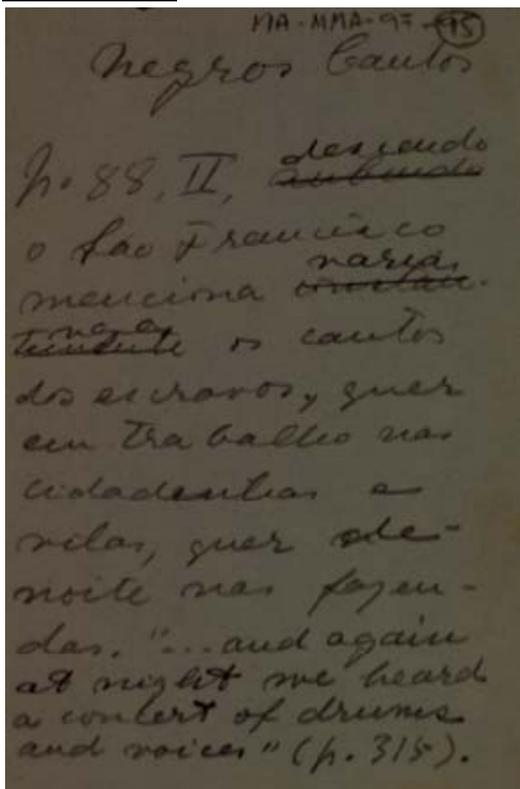 MA-MMA-97-95
Negros Cantos
p. 88, II, descendo subindo
o São Francisco
menciona varias constan-
vezes temente os cantos
dos escravos, quer
em trabalho nas
cidadeinhas e
vilas, quer de
noite nas fazen-
das. "...and again
at night we heard
a concert of drums
and voices" (p. 315).